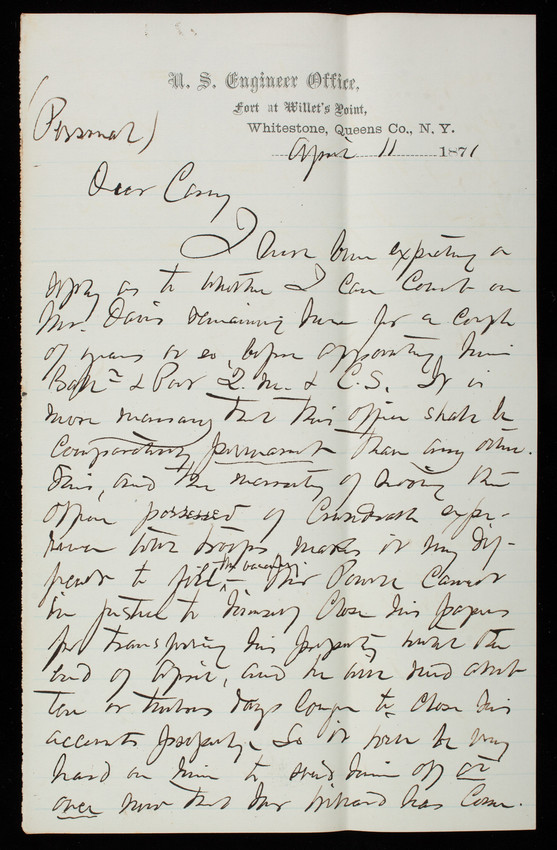 U. S. Engineer Office,
Fort at Willet's Point,
Whitestone, Queens Co., N. Y.
(Personal)
April 11 1871
Dear Casey
I have been expecting a
reply as to whether I can count on
Mr. Davis remaining here for a couple
of years or so, before appointing him
Batn & Post Q. M. & C. S. It is
more necessary that this officer shall be
comparatively permanent than any other.
This, and the necessity of having the
officer possessed of considerable expe-
rience with troops makes it very dif-
ficult to fill the vacancy. Mr Powell cannot
in justice to himself close his papers
for transferring his property until the
end of April, and he will need about
ten or twelve days longer to close his
accounts properly. So it will be very
hard on him to send him off at
once now that Mr has come.